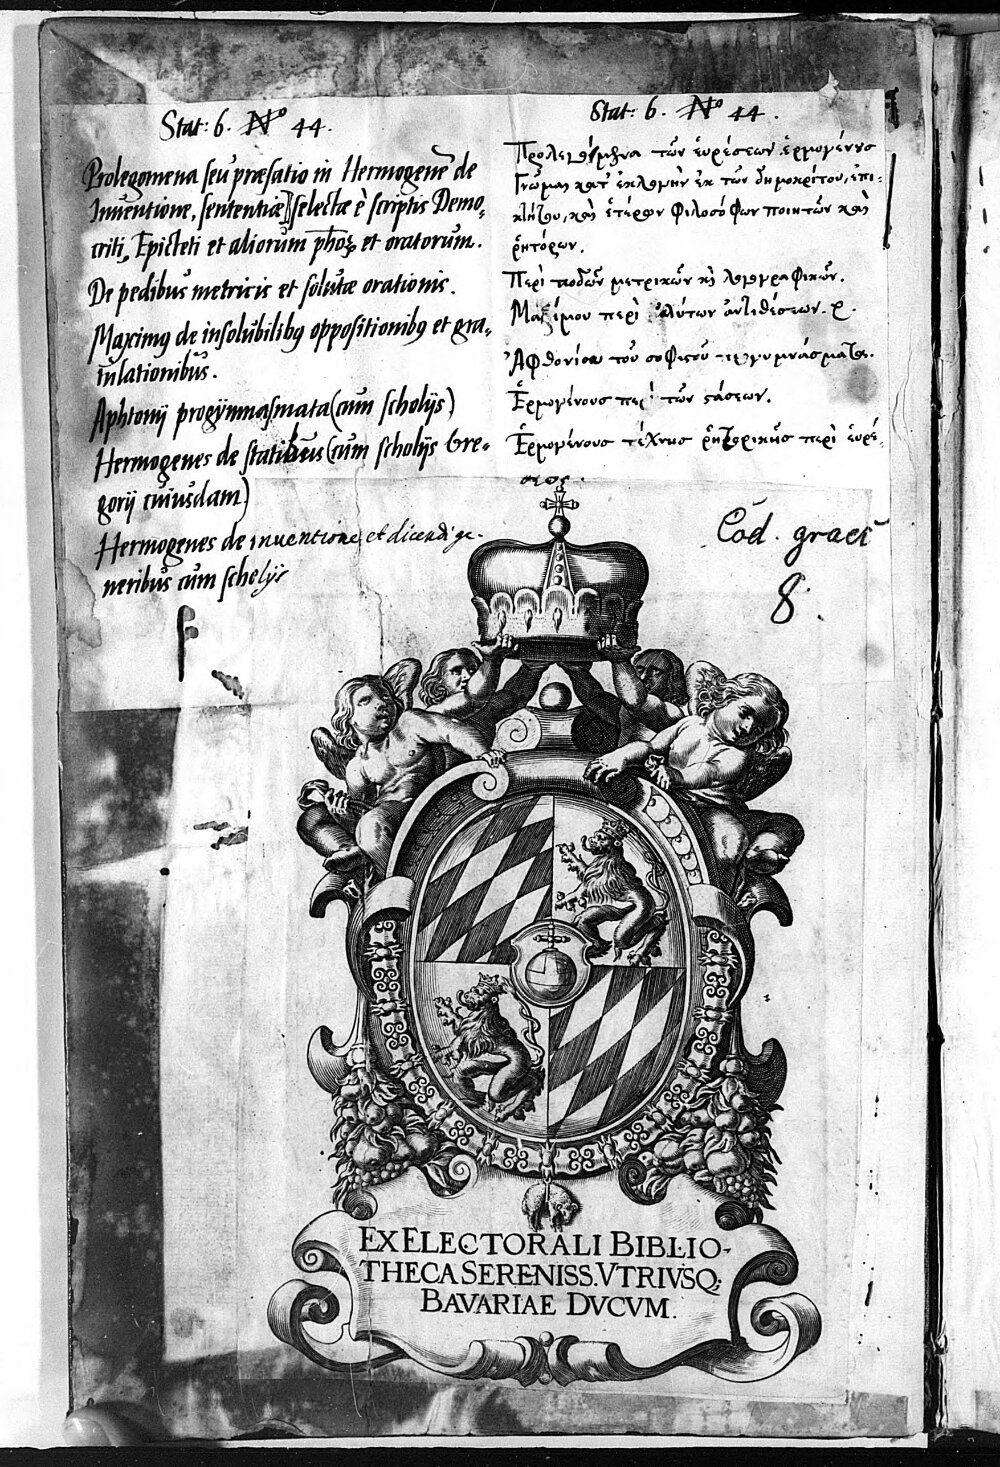 Stat: 6. No 44.
Prolegomena seu præfatio in Hermogenē de
Inventione, sententiæ selectæ è scriptis Demo,
criti, Epicteti et aliorum et oratorum.
De pedibus metricis et solutæ orationis.
Maximus de insolubilibus oppositionibus et gra,
tulationibus.
Aphtonij progÿmnasmata (cum scholijs)
Hermogenes de statibus (cum scholijs Gre-
gorij cuiusdam)
Hermogenes de inventione et dicendi ge.
neribus cum scholijs
Stat: 6. No 44.
Προλεγόμενα τῶν εὑρέσεων ἑρμογένους
Γνῶμαι κατ' ἐκλογὴν ἐκ τῶν δημοκρίτου, ἐπι.
κτήτου, καὶ ἑτέρων φιλοσόφων ποιητῶν καὶ
ῥητόρων.
Περὶ ποδῶν μετρικῶν κὶ λογογραφικῶν.
Μαξίμου περὶ ἀλύτων ἀντιθέσεων.
Ἀφθονίου τοῦ σοφιστοῦ προγυμνάσματα.
Ἑρμογένους περὶ τῶν στάσεων.
Ἑρμογένους τέχνης ῥητορικῆς περὶ εὑρέ-
σεως.
Cod. graec
8.
EX ELECTORALI BIBLIO-
THECA SERENISS. VTRIVSQ;
BAVARIAE DVCVM.